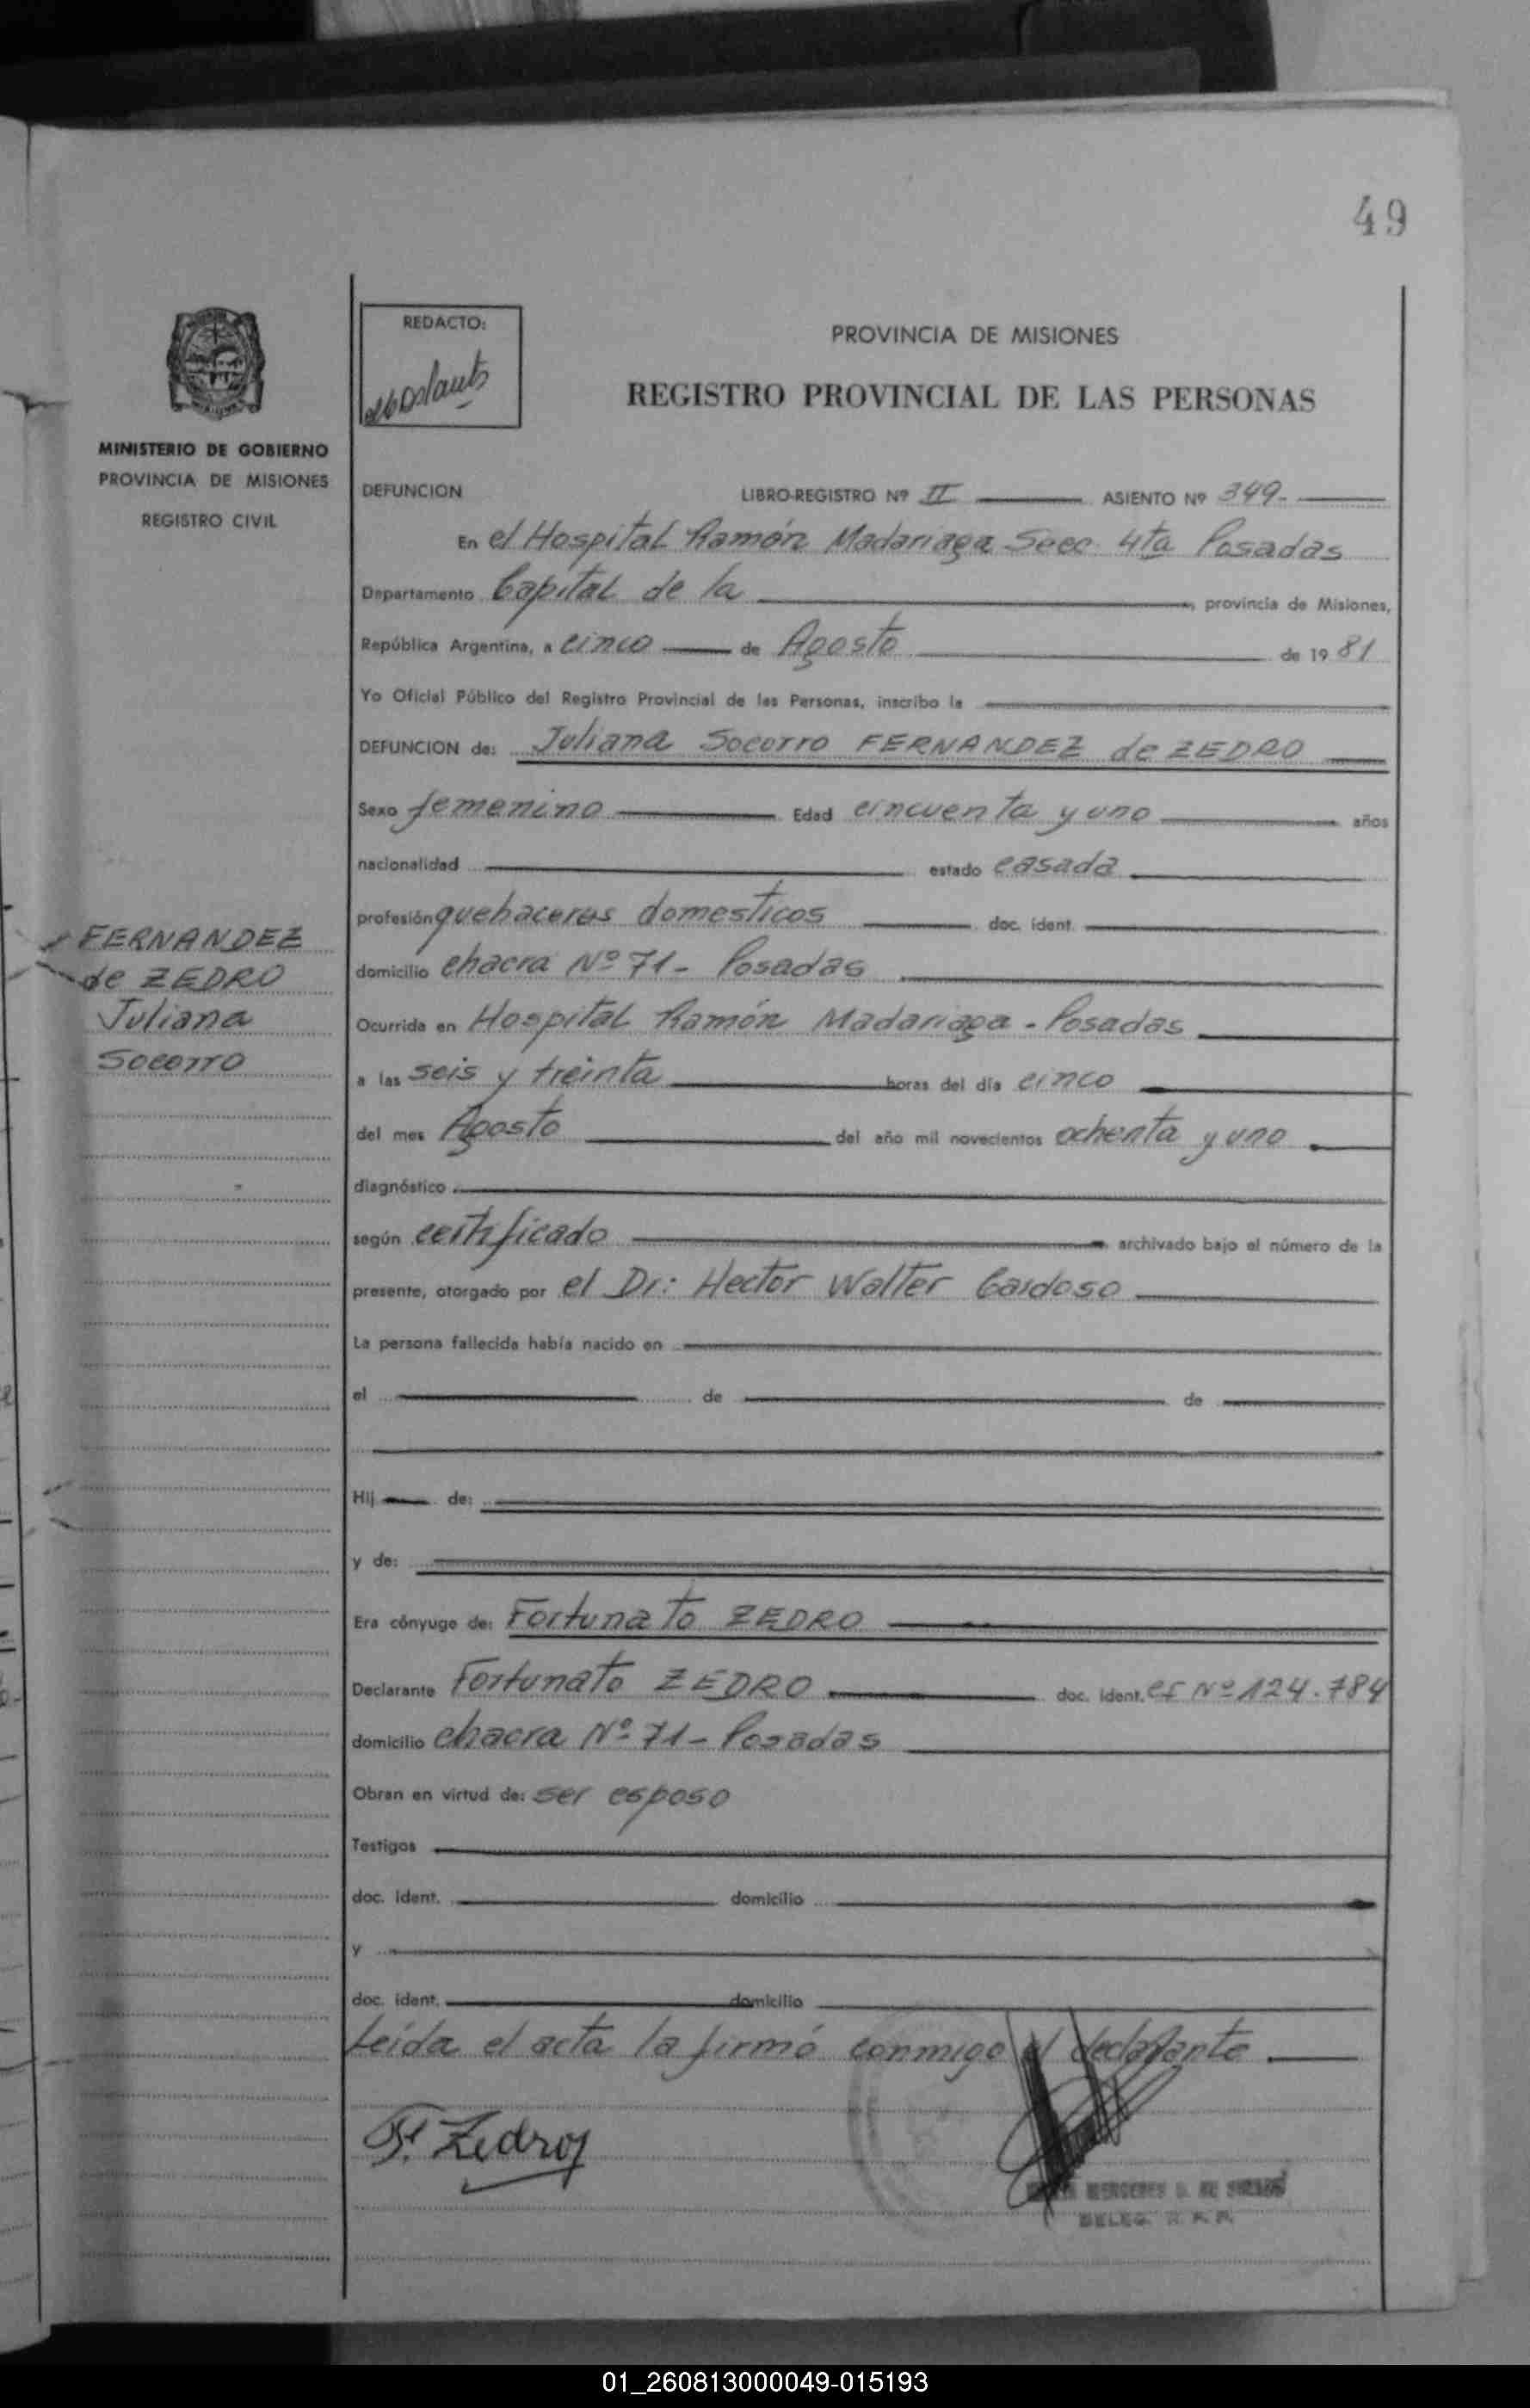 49
REDACTO:
PROVINCIA DE MISIONES
REGISTRO PROVINCIAL DE LAS PERSONAS
MINISTERIO DE GOBIERNO
PROVINCIA DE MISIONES
REGISTRO CIVIL
DEFUNCION LIBRO-REGISTRO Nº II ASIENTO Nº 349.-
En el Hospital Ramón Madariaga Secc. 4ta Posadas
Departamento Capital de la, provincia de Misiones,
República Argentina, a cinco de Agosto de 19 81
Yo Oficial Público del Registro Provincial de las Personas, inscribo la
DEFUNCION de: Juliana Socorro FERNANDEZ de ZEDRO
Sexo femenino Edad cincuenta y uno años
nacionalidad estado casada
profesión quehaceres domesticos doc. ident.
FERNANDEZ
de ZEDRO
Juliana
Socorro
domicilio chacra Nº 71 - Posadas
Ocurrida en Hospital Ramón Madariaga - Posadas
a las seis y treinta horas del día cinco
del mes Agosto del año mil novecientos ochenta y uno
diagnóstico
según certificado archivado bajo el número de la
presente, otorgado por el Dr: Hector Walter Cardoso
La persona fallecida había nacido en
el de de
Hij de:
y de:
Era cónyuge de: Fortunato ZEDRO
Declarante Fortunato ZEDRO doc. ident. Nº 124.784
domicilio chacra Nº 71 - Posadas
Obran en virtud de: ser esposo
Testigos
doc. ident. domicilio
y
doc. ident. domicilio
Leida el acta la firmó conmigo el declarante
F. Zedroj
MERCEDES
DELEG. R. P. P.
01_260813000049-015193